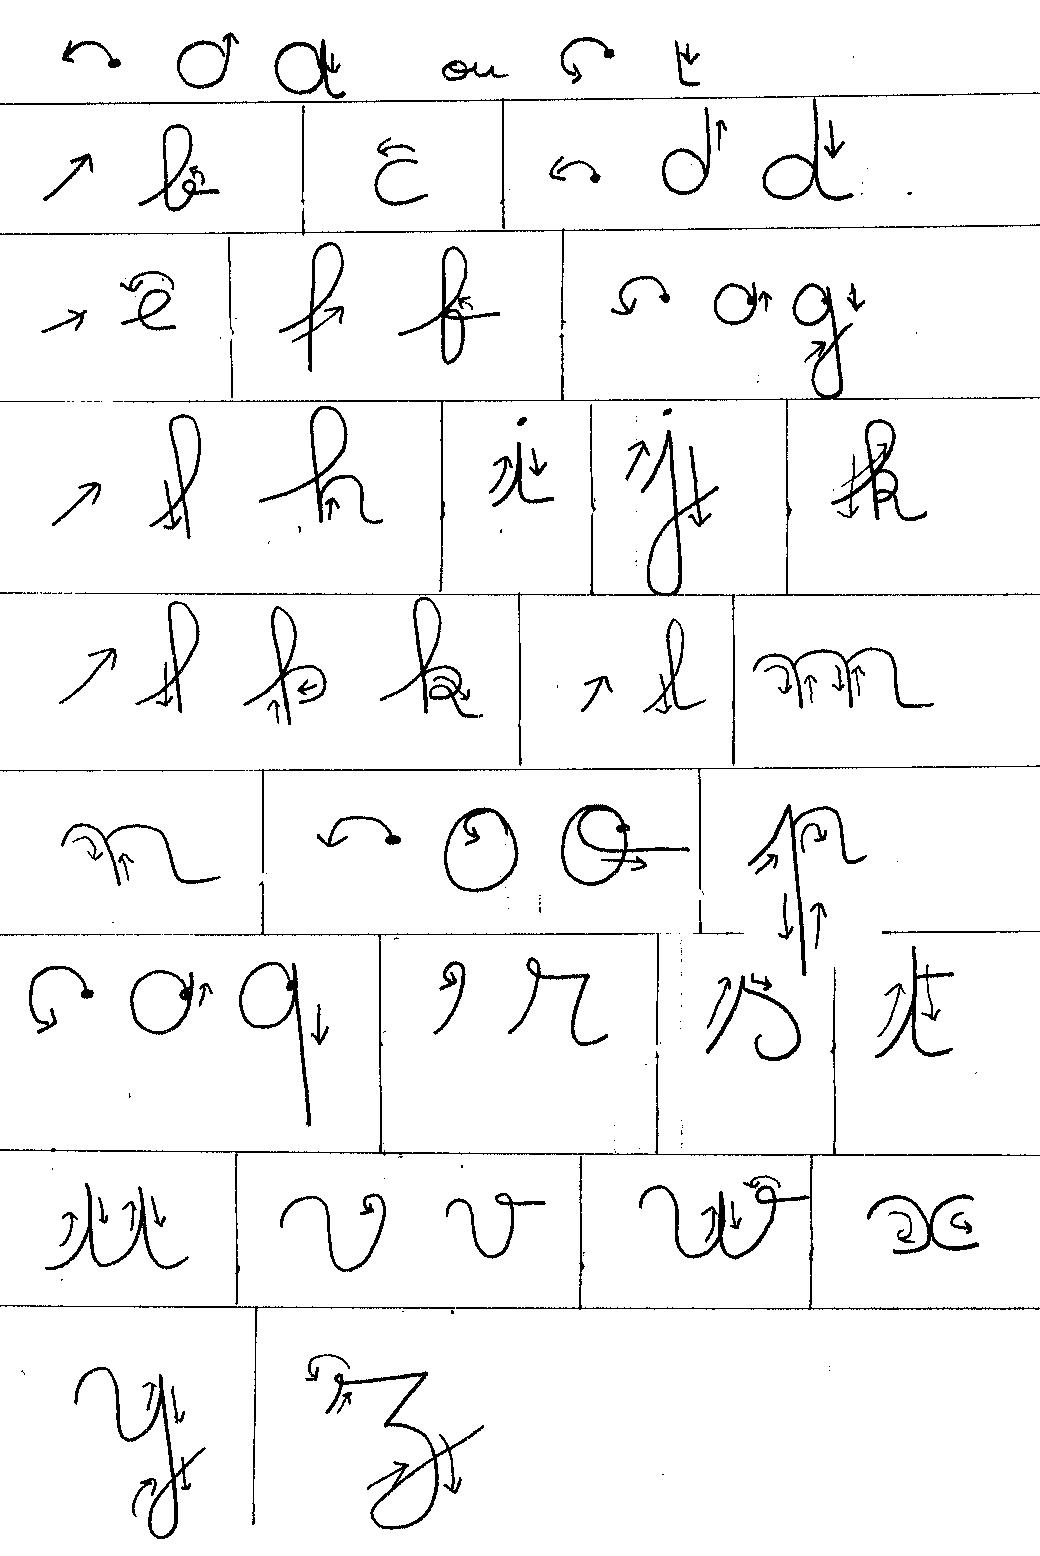 a ou ι
b c d d
e f f g
h i j k
k l m
n o p
q r s t
u v v w x
y z